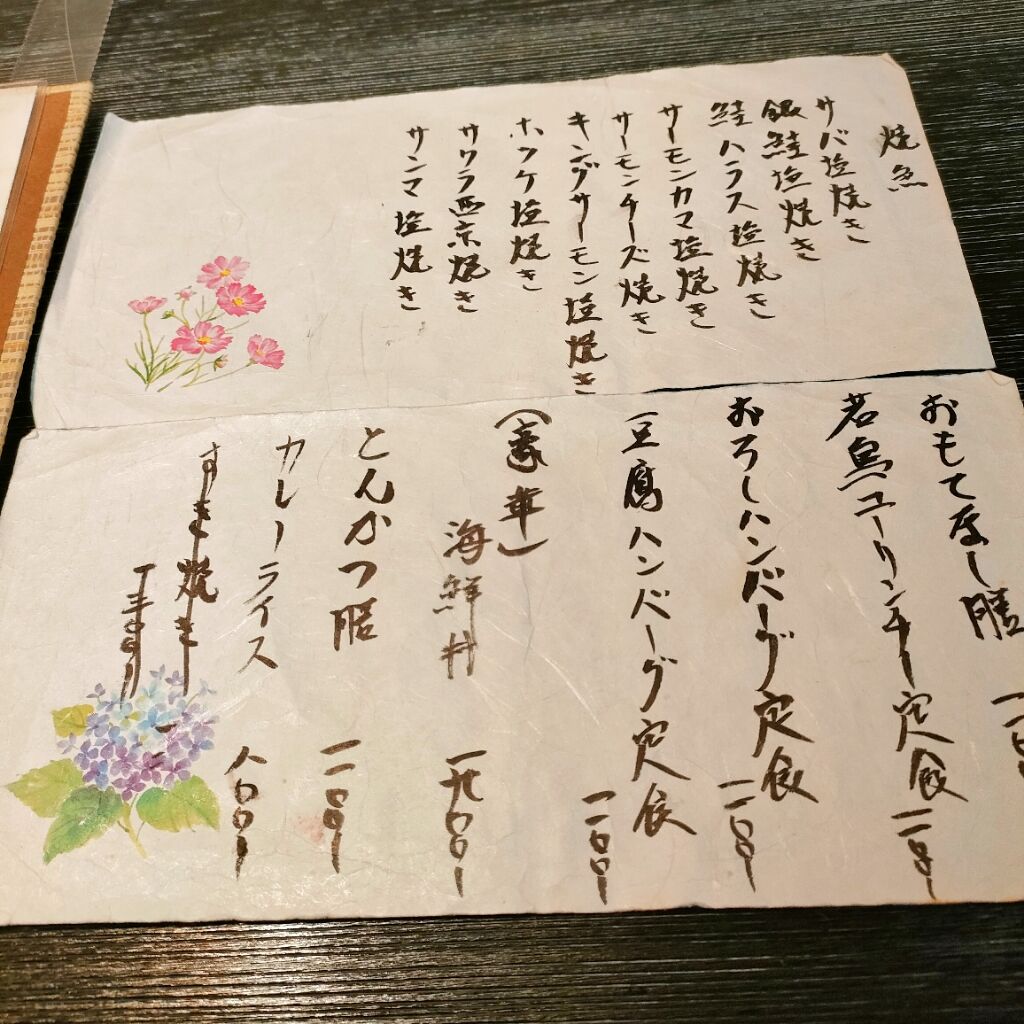 焼魚
サバ塩焼き
銀鮭塩焼き
鮭ハラス塩焼き
サーモンカマ塩焼き
サーモンチーズ焼き
キングサーモン塩焼き
ホッケ塩焼き
サワラ西京焼き
サンマ塩焼き
おもてなし膳
若鳥ユーリンチー定食 一一〇〇ー
おろしハンバーグ定食 一一〇〇ー
豆腐ハンバーグ定食 一一〇〇ー
(豪華)
海鮮丼 一九〇〇ー
とんかつ膳 一一〇〇ー
カレーライス 八〇〇ー
すき焼き